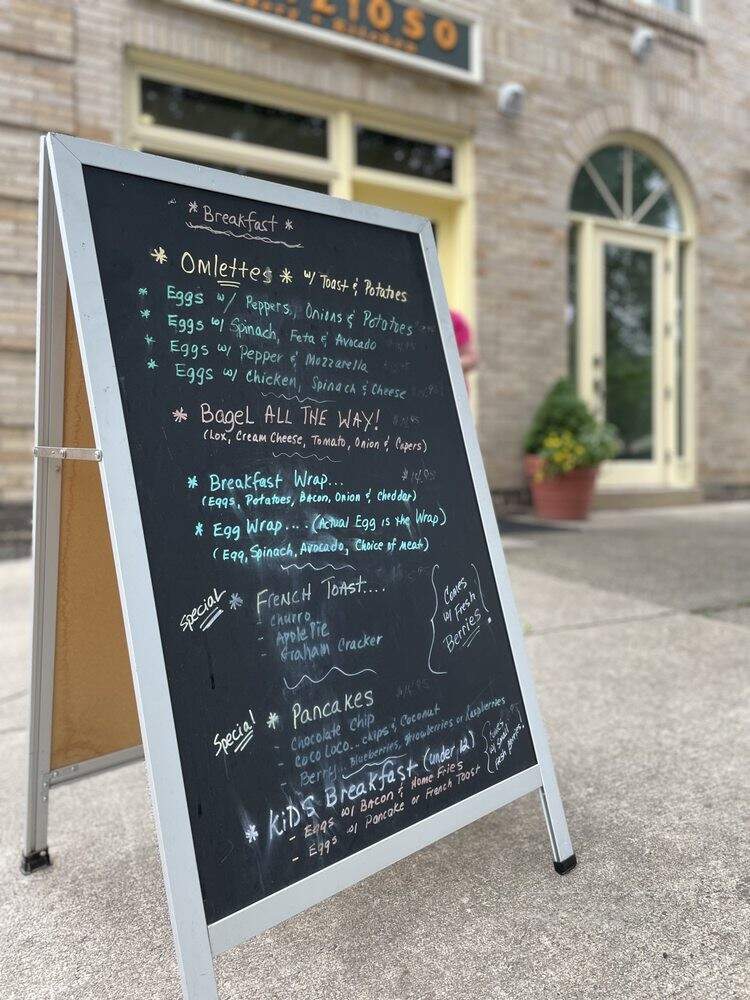 OSO
* Breakfast *
* Omlettes * w/ Toast & Potatoes
* Eggs w/ Peppers, Onions & Potatoes
* Eggs w/ Spinach, Feta & Avocado
* Eggs w/ Pepper & Mozzarella
* Eggs w/ Chicken, Spinach & Cheese
* Bagel ALL THE WAY!
(Lox, Cream Cheese, Tomato, Onion & Capers)
* Breakfast Wrap... $14.95
(Eggs, Potatoes, Bacon, Onion & Cheddar)
* Egg Wrap.... (Actual Egg is the Wrap)
(Egg, Spinach, Avocado, Choice of meat)
Special * French Toast....
- Churro
- Apple Pie
- Graham Cracker
{Comes w/ Fresh Berries.}
Special * Pancakes
- Chocolate Chip
- Coco Loco... chips & Coconut
- Berry... Blueberries, Strawberries or Raspberries
Fresh Berries.
* KiDS Breakfast (under 12)
- Eggs w/ Bacon & Home Fries
- Eggs w/ Pancake or French Toast